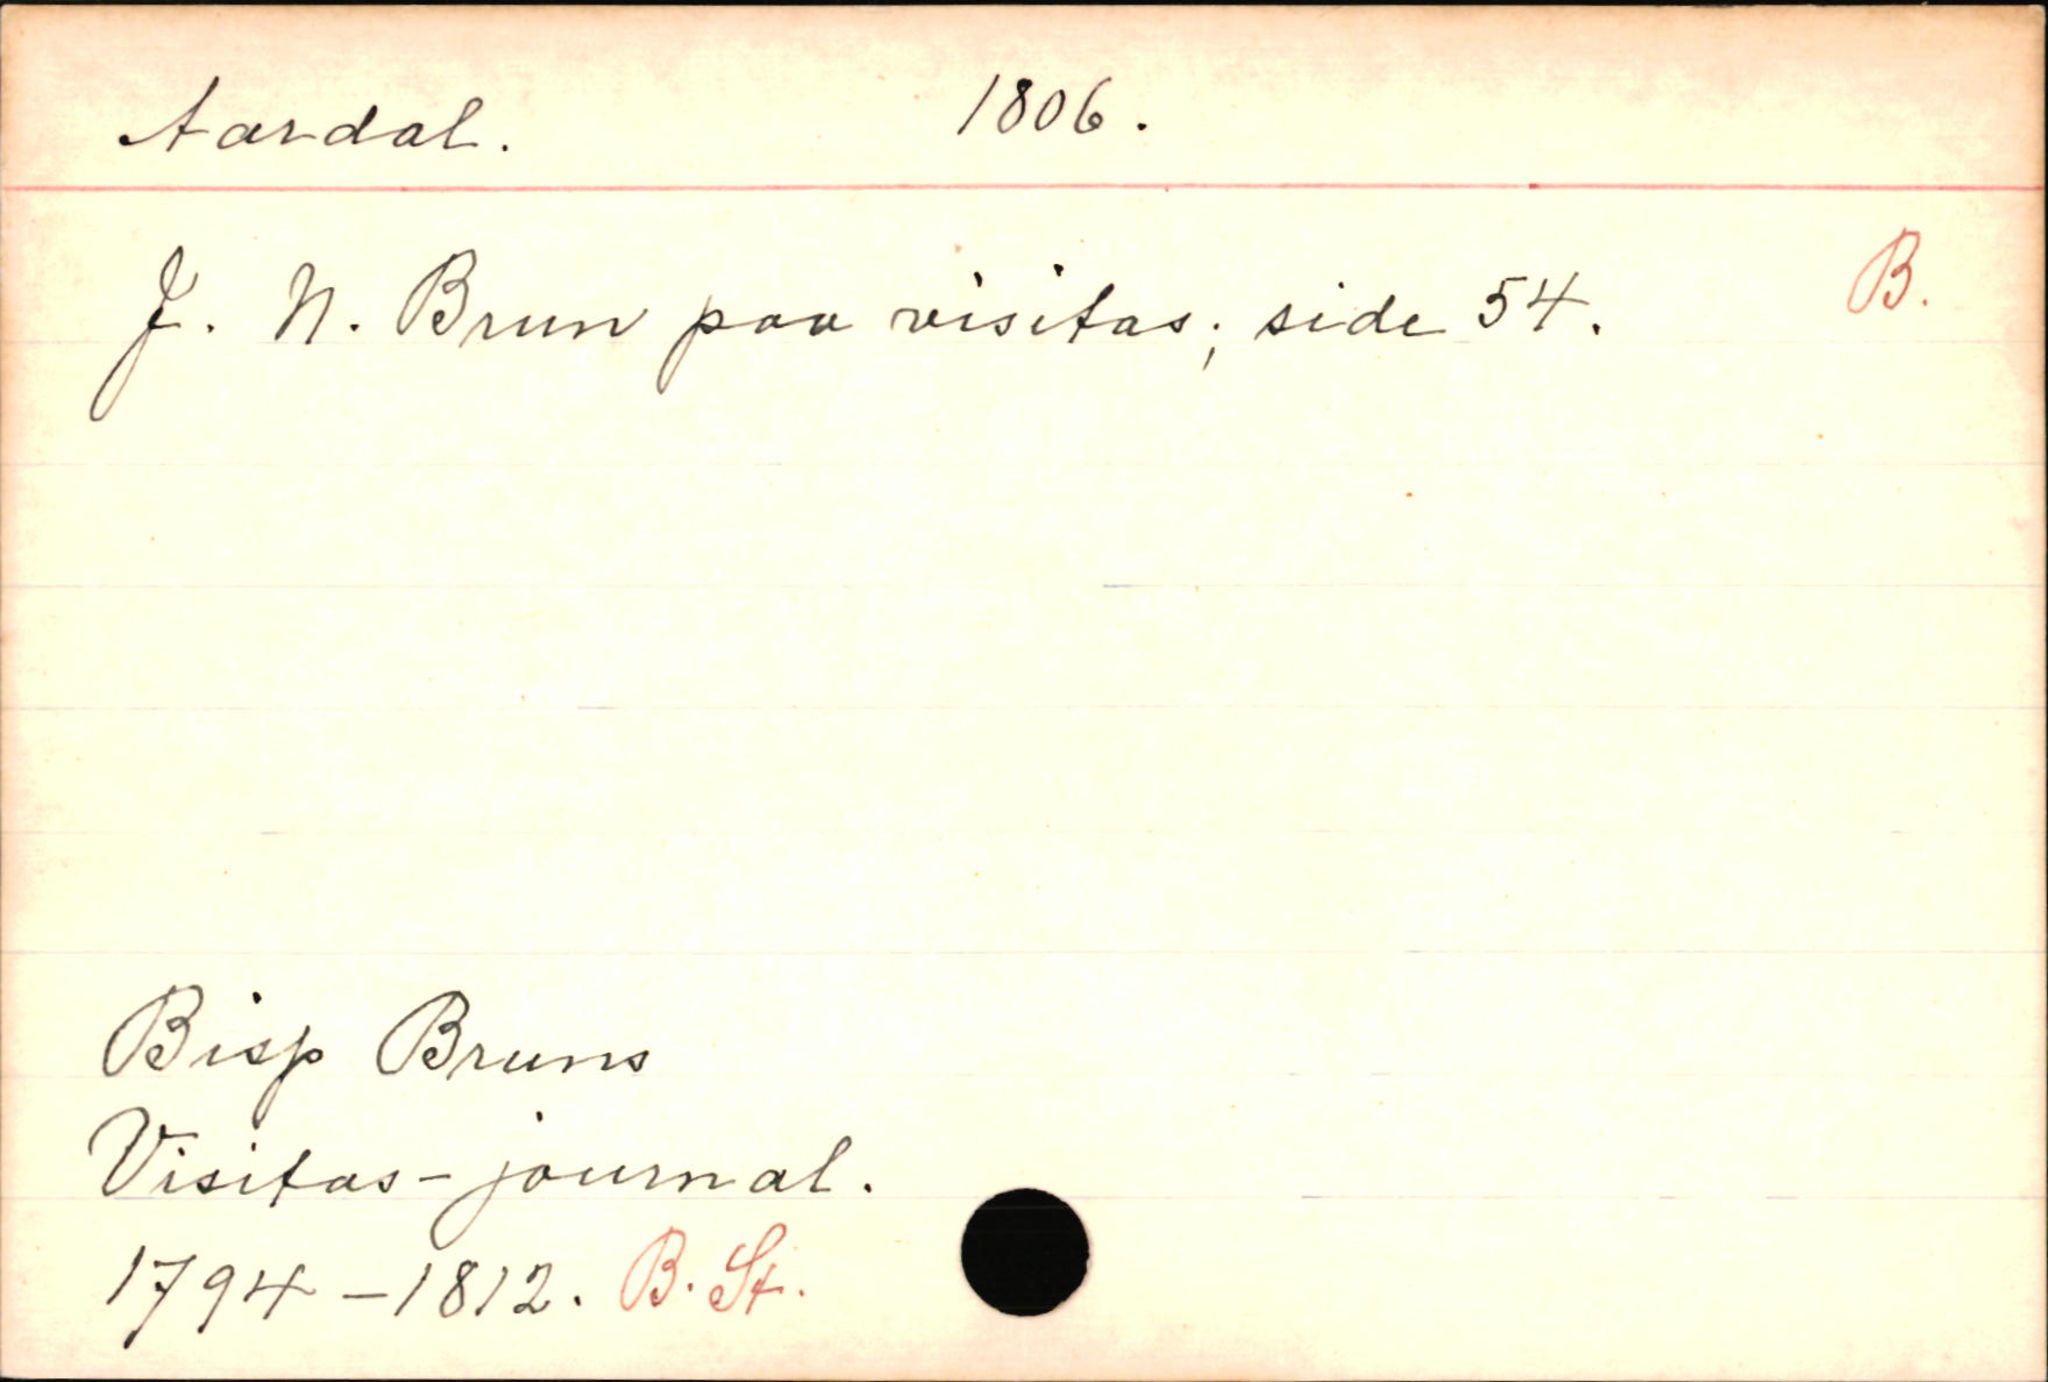 Aardal. 1806.
J. N. Brun paa visitas; side 54. B.
Bisp Bruns
Visitas-journal.
1794-1812. B. St.